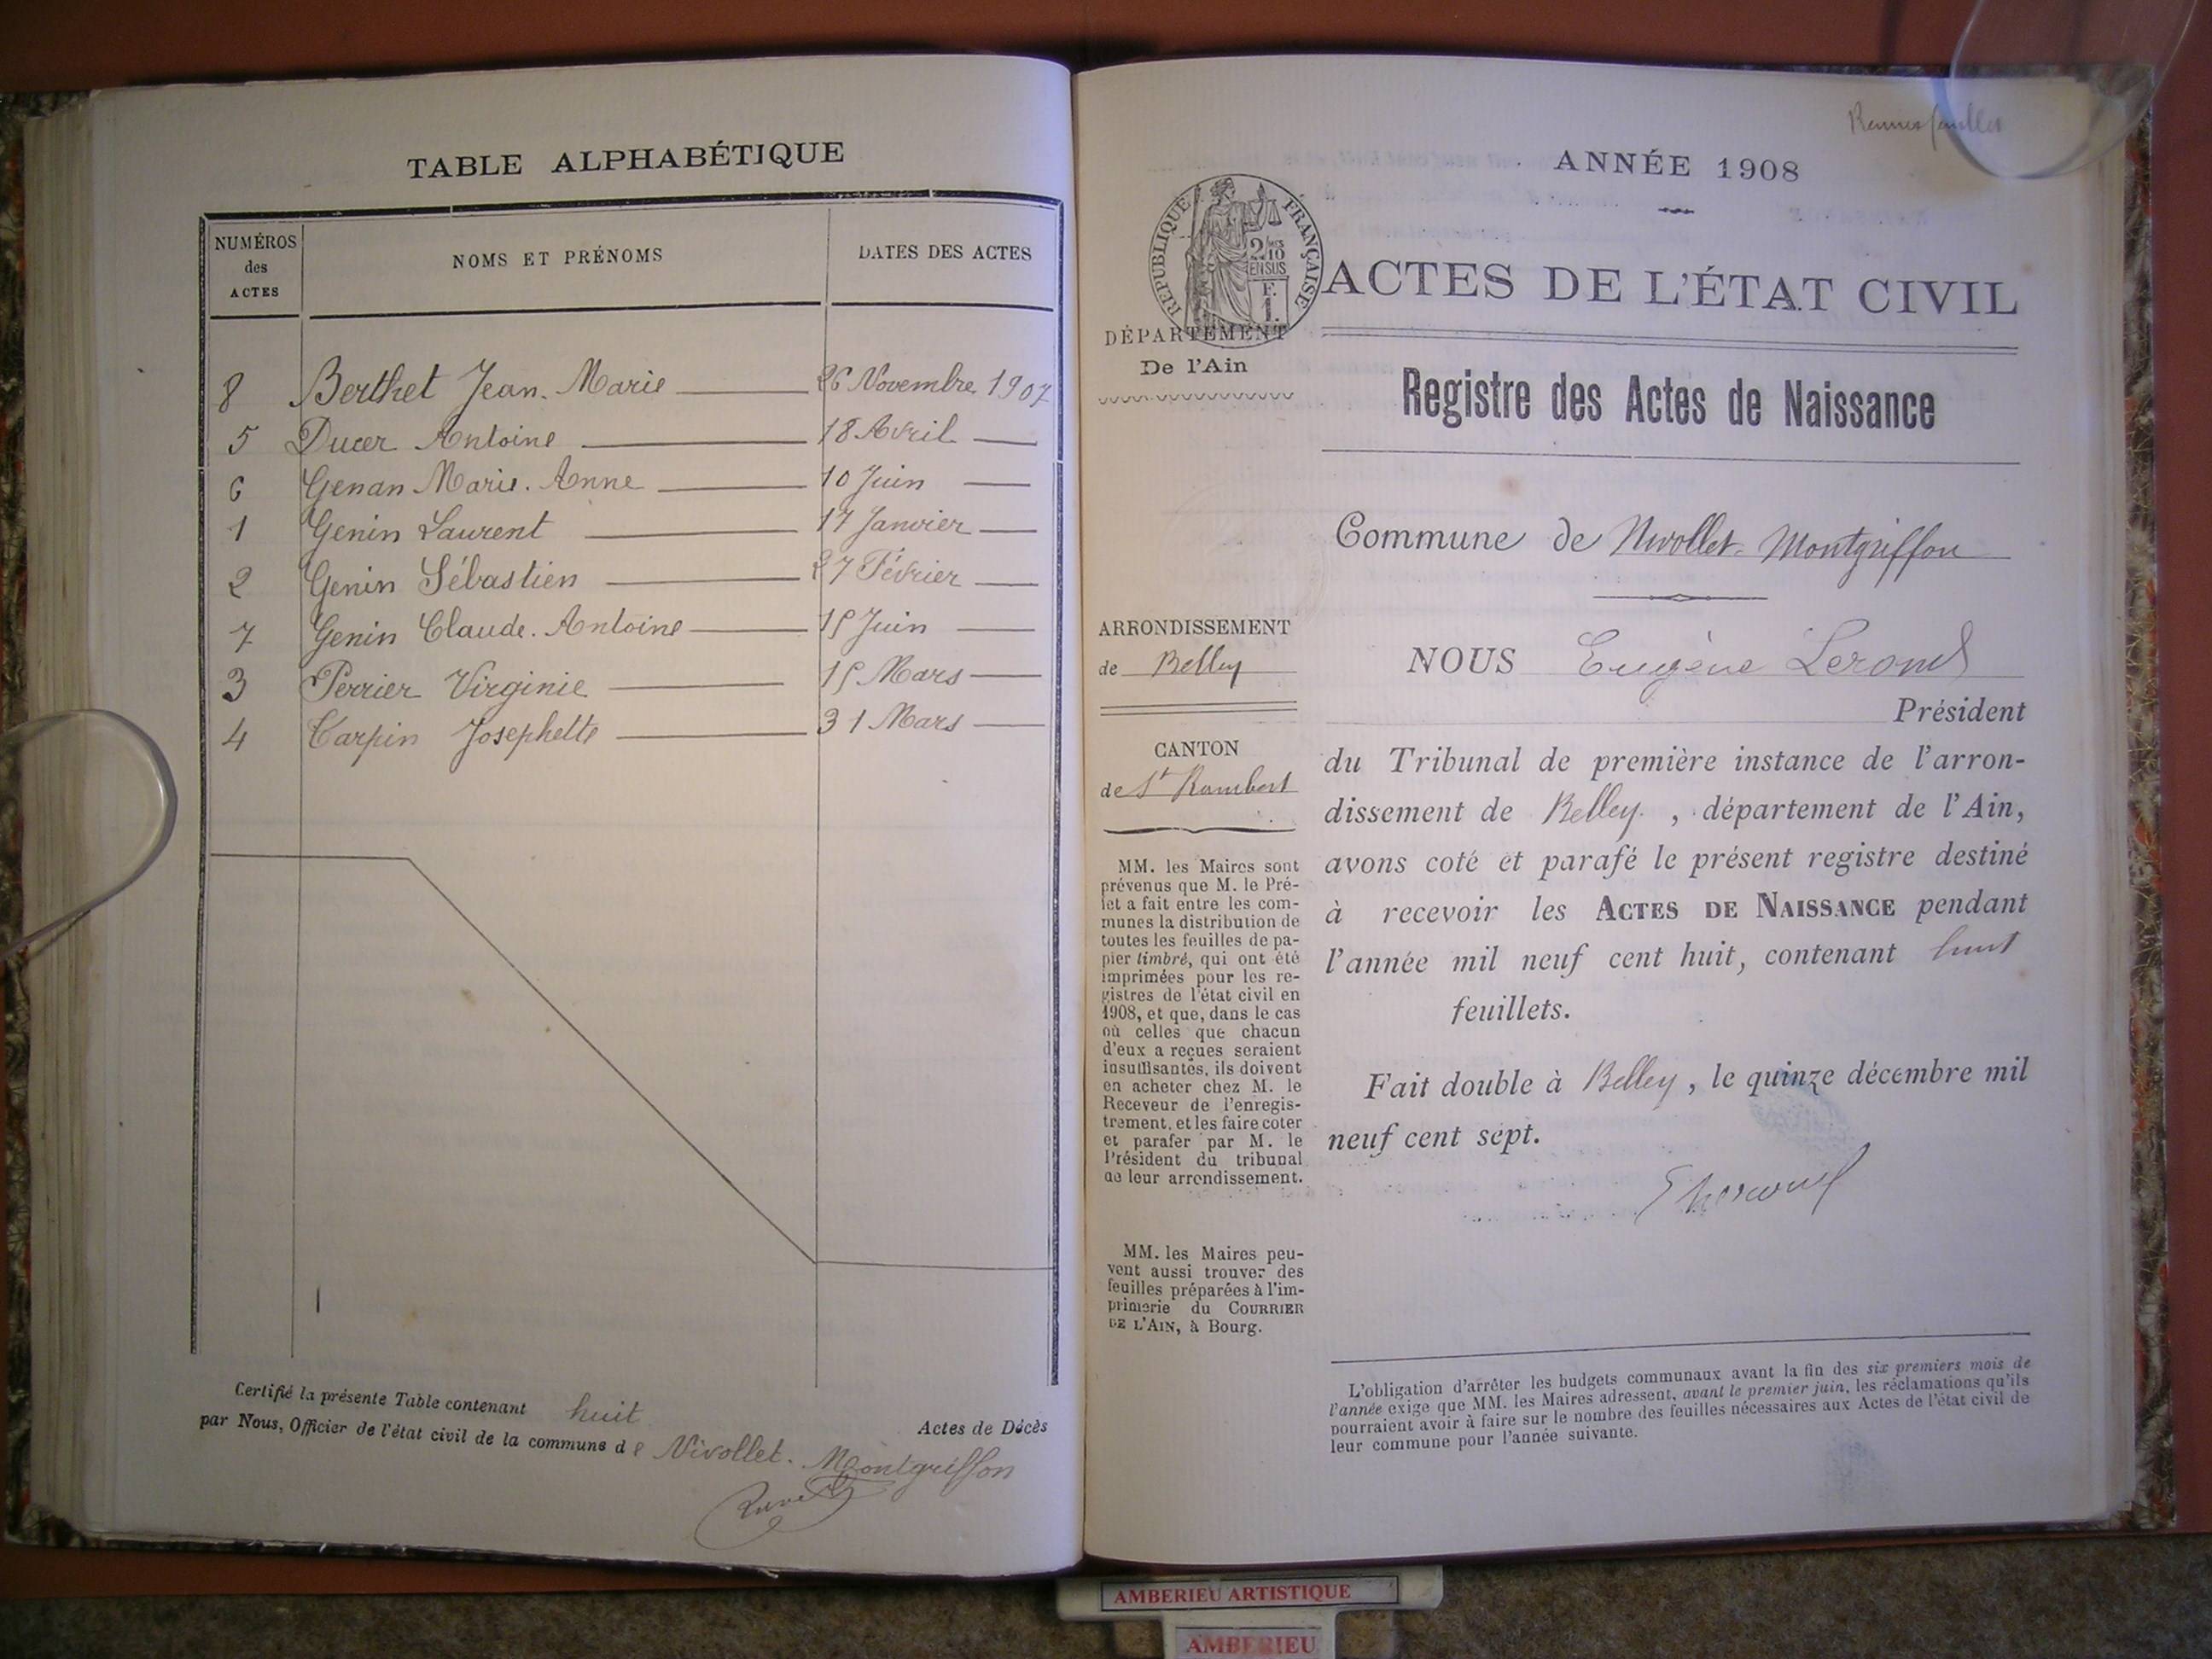 TABLE ALPHABÉTIQUE
NUMÉROS
des
ACTES
NOMS ET PRÉNOMS
DATES DES ACTES
8 Berthet Jean-Marie 26 Novembre 1907
5 Ducer Antoine 18 Avril
6 Genan Marie-Anne 10 Juin
1 Genin Laurent 17 Janvier
2 Genin Sébastien 27 Février
7 Genin Claude-Antoine 15 Juin
3 Perrier Virginie 15 Mars
4 Carpin Josephette 31 Mars
Certifié la présente Table contenant huit Actes de Décès
par Nous, Officier de l'état civil de la commune de Nivollet-Montgriffon
ANNÉE 1908
RÉPUBLIQUE FRANÇAISE
2/10
EN SUS
F.
1.
ACTES DE L'ÉTAT CIVIL
DÉPARTEMENT
De l'Ain
Registre des Actes de Naissance
Commune de Nivollet-Montgriffon
ARRONDISSEMENT
de Belley
CANTON
de St Rambert
MM. les Maires sont
prévenus que M. le Pré-
fet a fait entre les com-
munes la distribution de
toutes les feuilles de pa-
pier timbré, qui ont été
imprimées pour les re-
gistres de l'état civil en
1908, et que, dans le cas
où celles que chacun
d'eux a reçues seraient
insuffisantes, ils doivent
en acheter chez M. le
Receveur de l'enregis-
trement, et les faire coter
et parafer par M. le
Président du tribunal
de leur arrondissement.
MM. les Maires peu-
vent aussi trouver des
feuilles préparées à l'im-
primerie du COURRIER
DE L'AIN, à Bourg.
NOUS Eugène Lerond
Président
du Tribunal de première instance de l'arron-
dissement de Belley, département de l'Ain,
avons coté et parafé le présent registre destiné
à recevoir les ACTES DE NAISSANCE pendant
l'année mil neuf cent huit, contenant huit
feuillets.
Fait double à Belley, le quinze décembre mil
neuf cent sept.
L'obligation d'arrêter les budgets communaux avant la fin des six premiers mois de
l'année exige que MM. les Maires adressent, avant le premier juin, les réclamations qu'ils
pourraient avoir à faire sur le nombre des feuilles nécessaires aux Actes de l'état civil de
leur commune pour l'année suivante.
AMBERIEU ARTISTIQUE
AMBERIEU